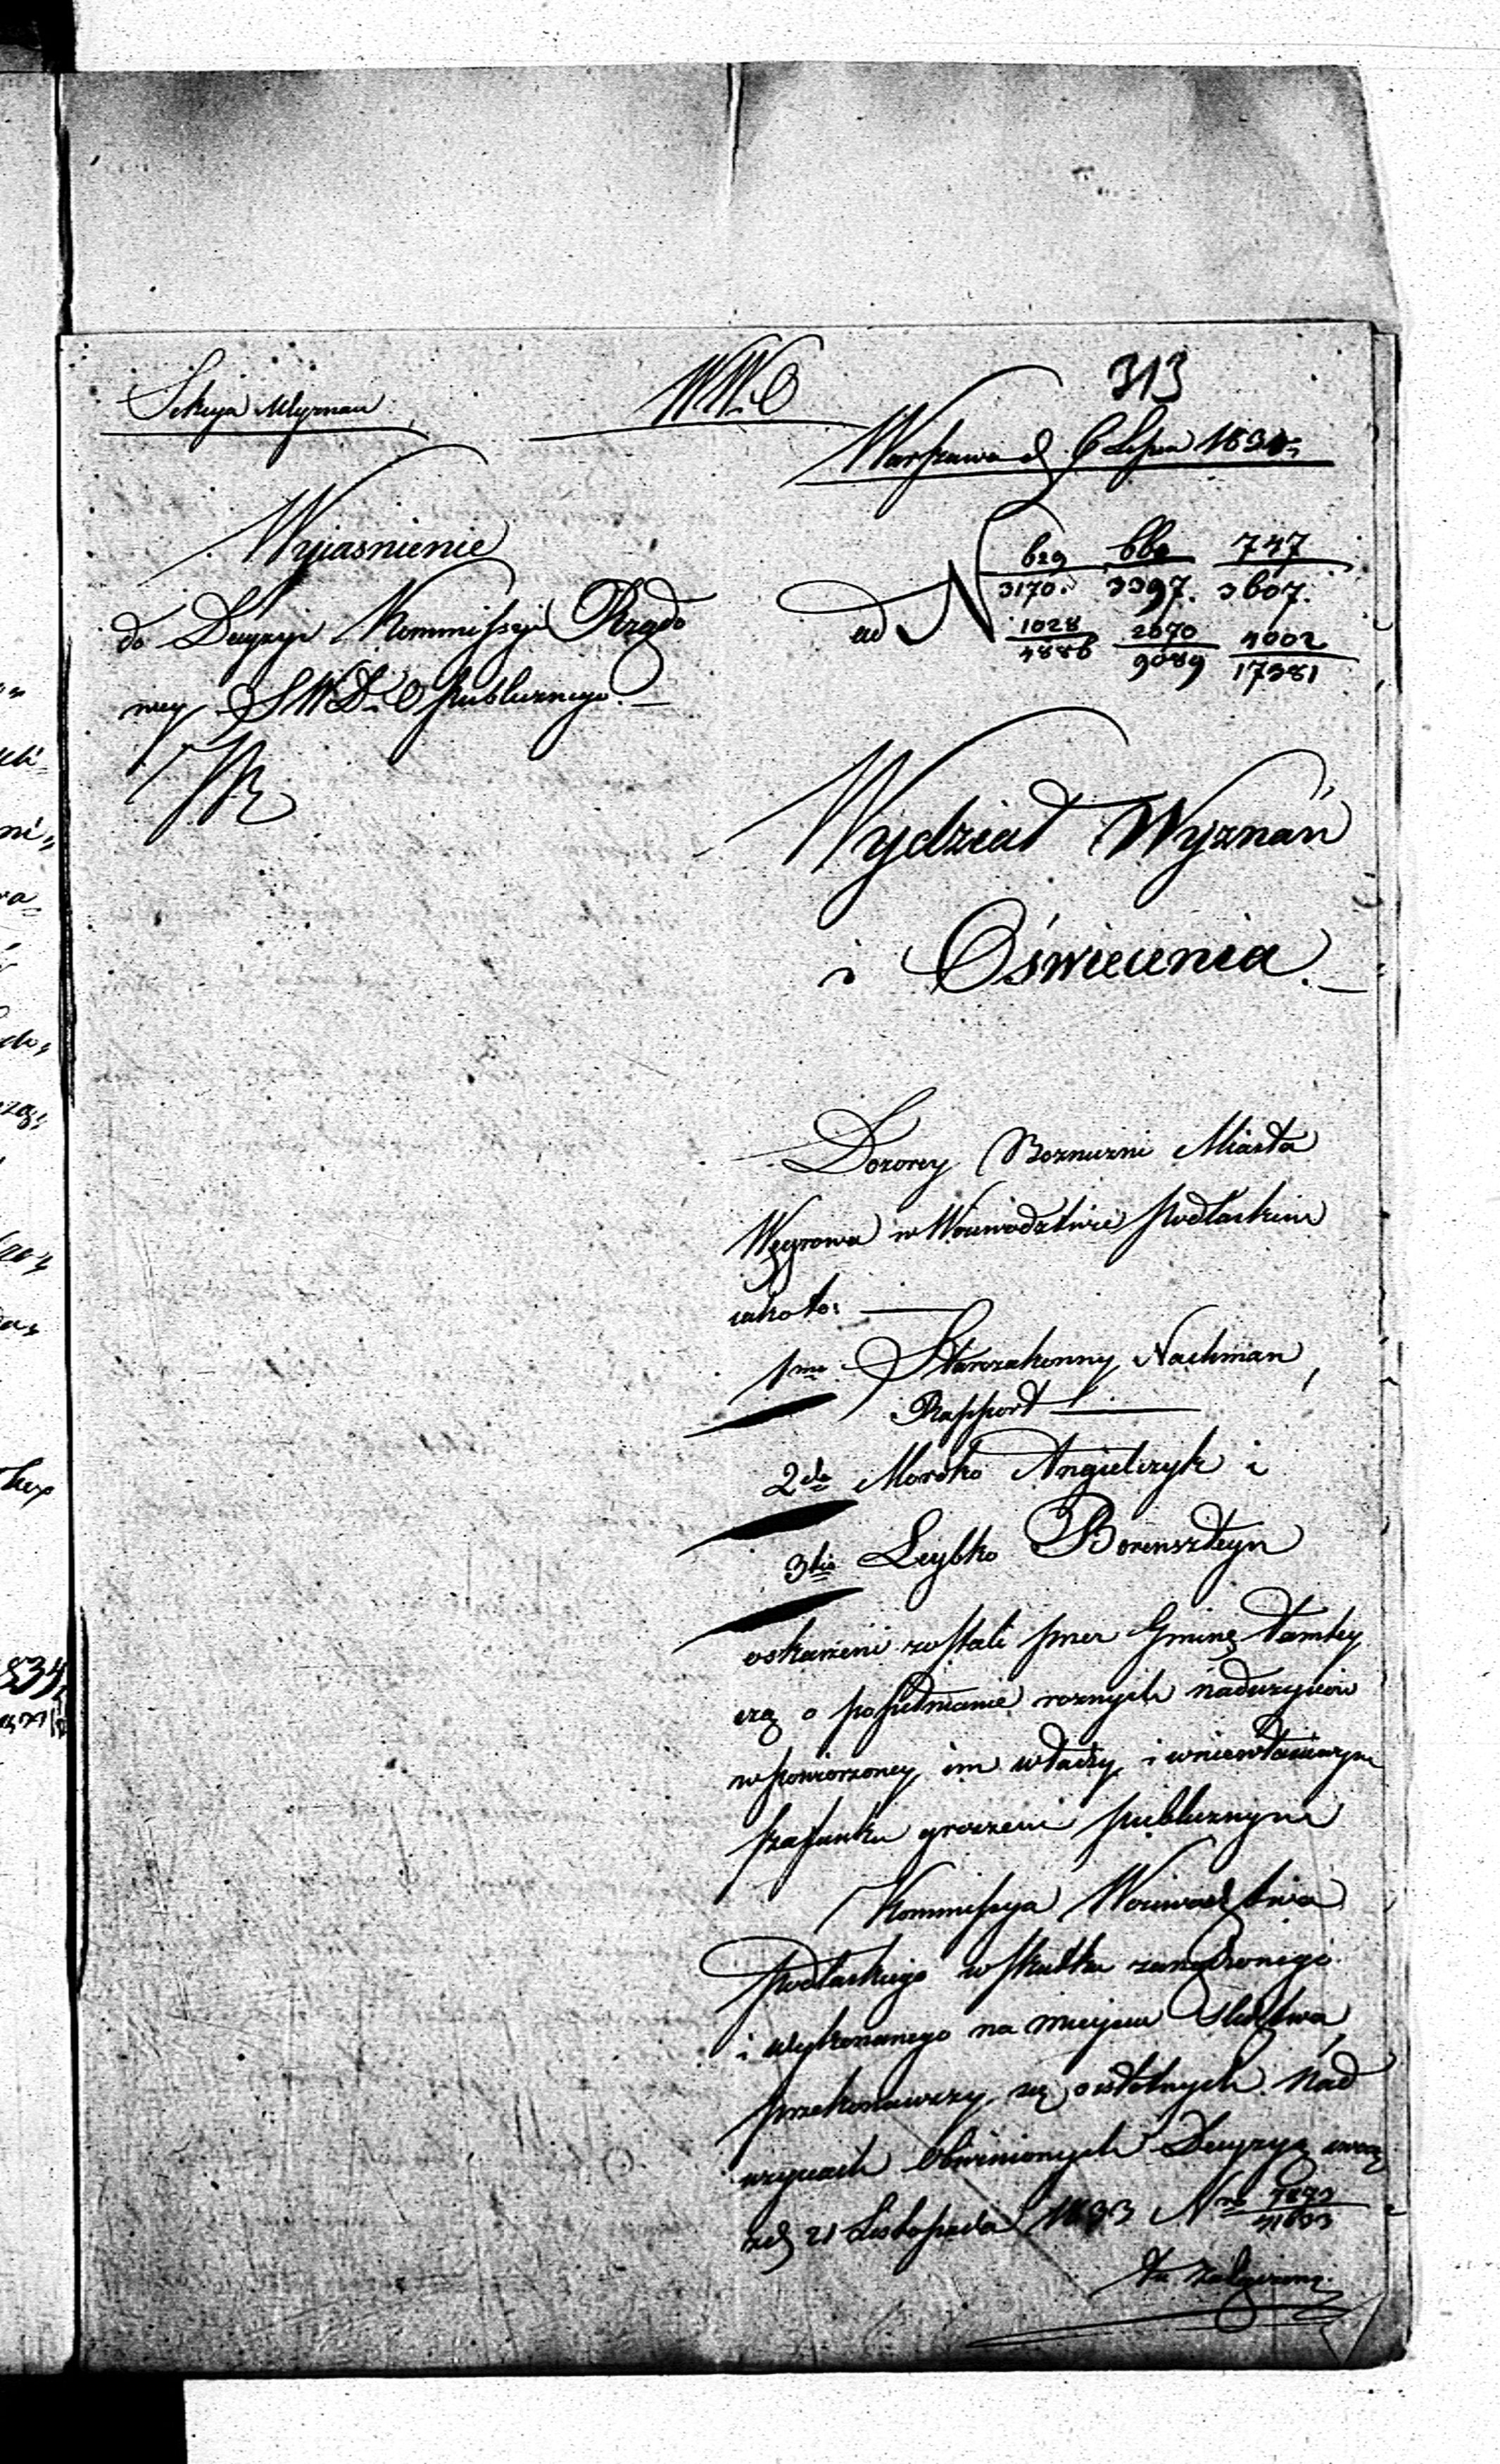 313
Sekcya Wyznań
WW.O
Warszawa d. 6 Lipca 1834 r.
Wyiasnienie
do Decyzyi Kommissyi Rządo
wey S.W.D. i O publicznego. —
ad N 629/3170. 3397. 747/3607.
1028/4886 2070/9089 4002/17381
Wydział Wyznań
i Oświecenia. —
Dozorcy Bozniczni Miasta
Węgrowa w Woiewodztwie Podlaskim
iako to: —
1mo Starozakonny Nachman
Rapport —
2do Morsko Angielczyk i
3tio Leybko Borenszteyn
oskarzeni zostali przez Gminę tamtey
szą o popełnianie roznych naduzyciów
w powierzoney im władzy i w niewłaściwym
szafunku groszem publicznym
Kommissya Woiewodztwa
Podlaskiego w skutku zarządzonego
i wykonanego na mieyscu Sledztwa,
przekonawszy się o istotnych nad
uzyciach obwinionych Decyzyą swoią
z d. 21 Listopada 1833 Nro 41633